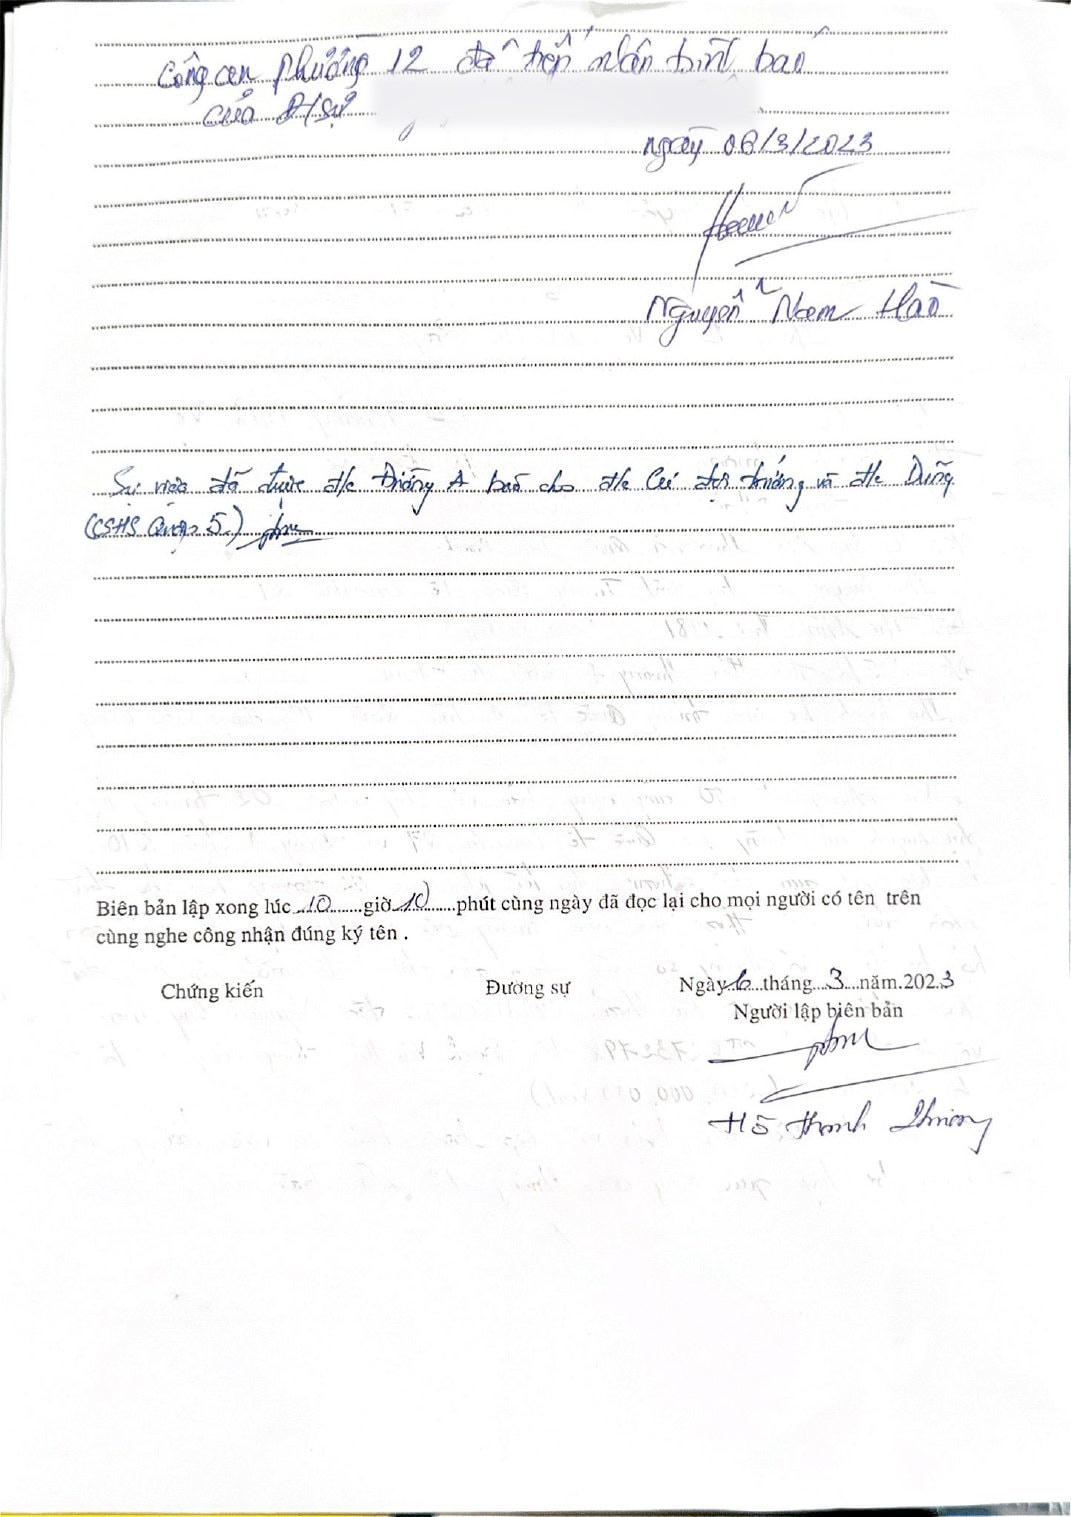 Công an phường 12 đã tiếp nhận trình báo
của Đ/sự
ngày 06/3/2023
Nguyễn Nam Hào
Sự việc đã được đ/c Hoàng A báo cho đ/c đội trưởng và đ/c Dũng
(CSHS Quận 5.)
Biên bản lập xong lúc 10 giờ 10 phút cùng ngày đã đọc lại cho mọi người có tên trên
cùng nghe công nhận đúng ký tên .
Chứng kiến Đương sự Ngày 6 tháng 3 năm 2023
Người lập biên bản
Hồ Thanh